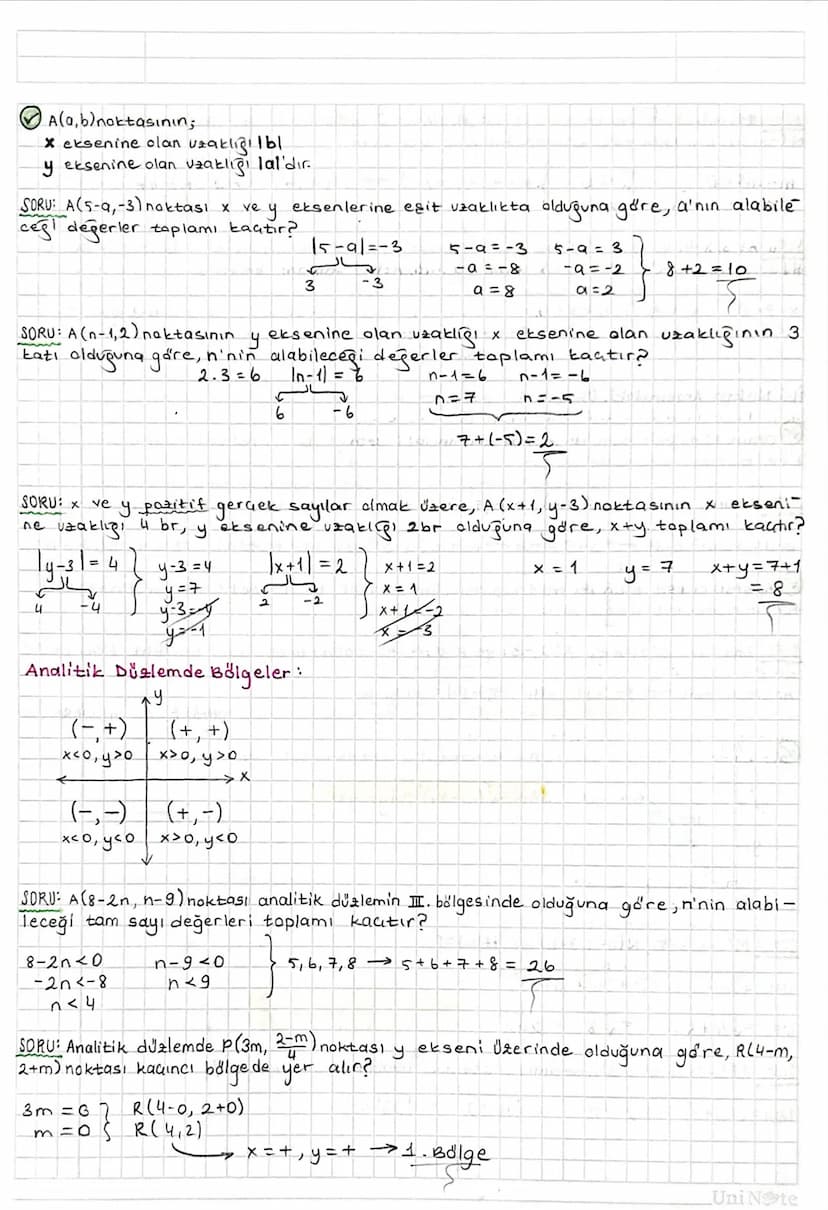 A(a,b) noktasının;
x eksenine olan uzaklığı |b|
y eksenine olan uzaklığı |a|'dır.
SORU: A(5-a,-3) noktası x ve y eksenlerine eşit uzaklıkta olduğuna göre, a'nın alabile-
ceği değerler toplamı kaçtır?
|5-a|=-3 5-a=-3 5-a=3
3 -3 -a=-8 -a=-2 8+2=10
a=8 a=2
SORU: A(n-1,2) noktasının y eksenine olan uzaklığı x eksenine olan uzaklığının 3
katı olduğuna göre, n'nin alabileceği değerler toplamı kaçtır?
2.3=6 |n-1|=6 n-1=6 n-1=-6
6 -6 n=7 n=-5
7+(-5)=2
SORU: x ve y pozitif gerçek sayılar olmak üzere, A(x+1, y-3) noktasının x ekseni-
ne uzaklığı 4 br, y eksenine uzaklığı 2br olduğuna göre, x+y toplamı kaçtır?
|y-3|=4 y-3=4 |x+1|=2 x+1=2 x=1 y=7 x+y=7+1
4 -4 y=7 2 -2 x=1 =8
y-3=-4 x+1=-2
y=-1 x=-3
Analitik Düzlemde Bölgeler:
y
(-,+) (+,+)
x<0,y>0 x>0,y>0
x
(-,-) (+,-)
x<0,y<0 x>0,y<0
SORU: A(8-2n, n-9) noktası analitik düzlemin III. bölgesinde olduğuna göre, n'nin alabi-
leceği tam sayı değerleri toplamı kaçtır?
8-2n<0 n-9<0 5,6,7,8 → 5+6+7+8=26
-2n<-8 n<9
n<4
SORU: Analitik düzlemde P(3m, 2-m/4) noktası y ekseni üzerinde olduğuna göre, R(4-m,
2+m) noktası kaçıncı bölgede yer alır?
3m=0 R(4-0, 2+0)
m=0 R(4,2)
x=+, y=+ → 1. Bölge
UniNote